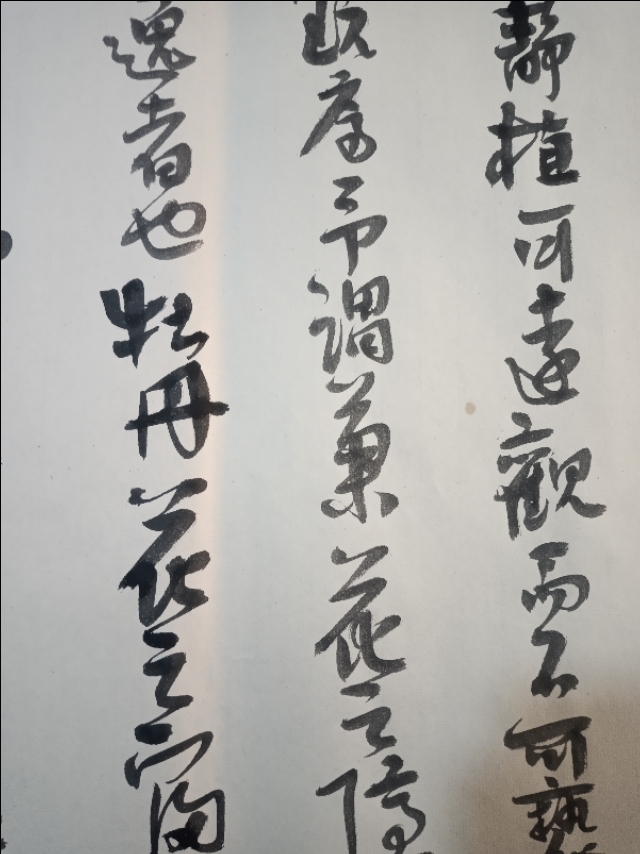 靜植可遠觀而不可褻
玩焉予謂菊花之隱
逸者也牡丹花之富